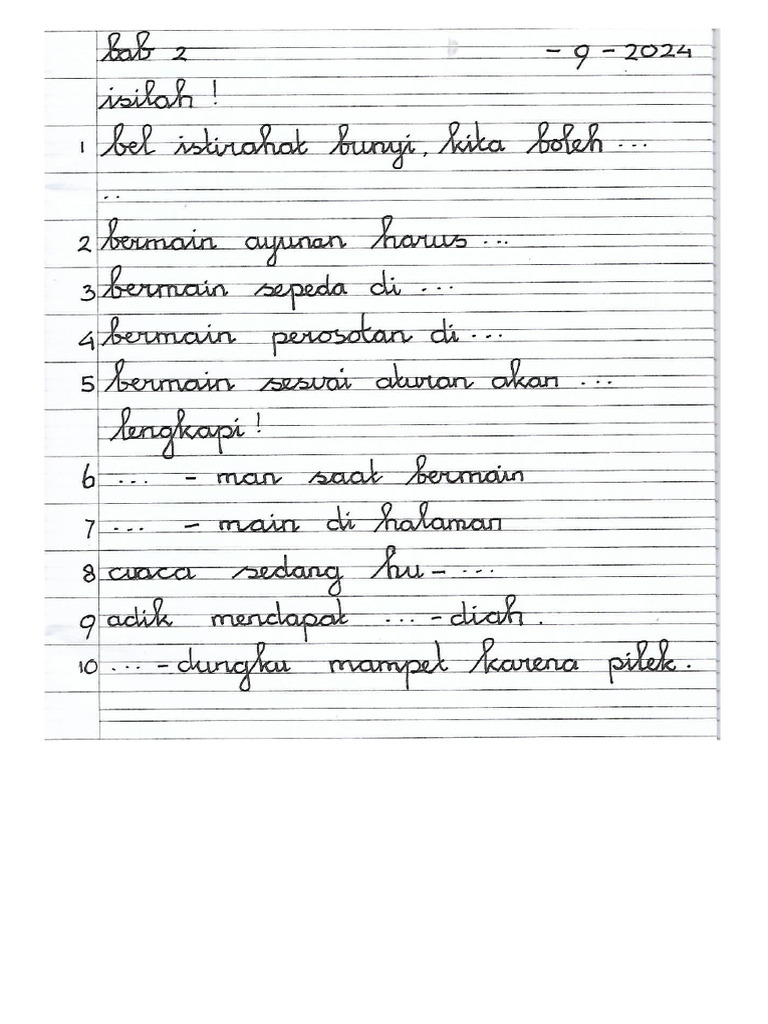 bab 2 - 9 - 2024
isilah !
1 bel istirahat bunyi, kita boleh ...
..
2 bermain ayunan harus ...
3 bermain sepeda di ...
4 bermain perosotan di ...
5 bermain sesuai aturan akan ...
lengkapi !
6 ... - man saat bermain
7 ... - main di halaman
8 cuaca sedang hu - ...
9 adik mendapat ... - diah.
10 ... - dungku mampet karena pilek.